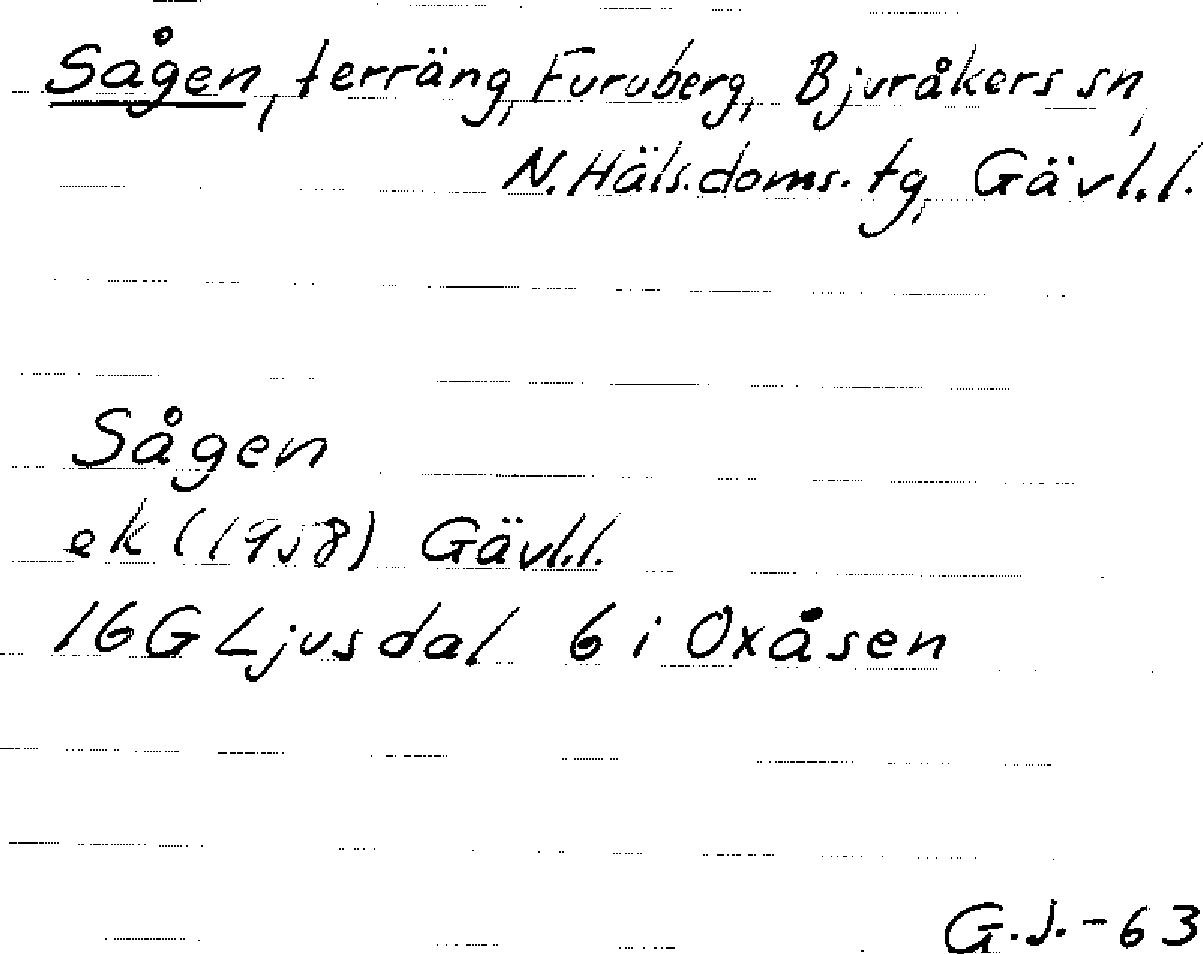 Sågen, terräng, Furuberg, Bjuråkers sn,
N. Häls. doms. tg, Gävl. l.
Sågen
ek (1958) Gävl. l.
16G Ljusdal 6 i Oxåsen
G.J. - 63